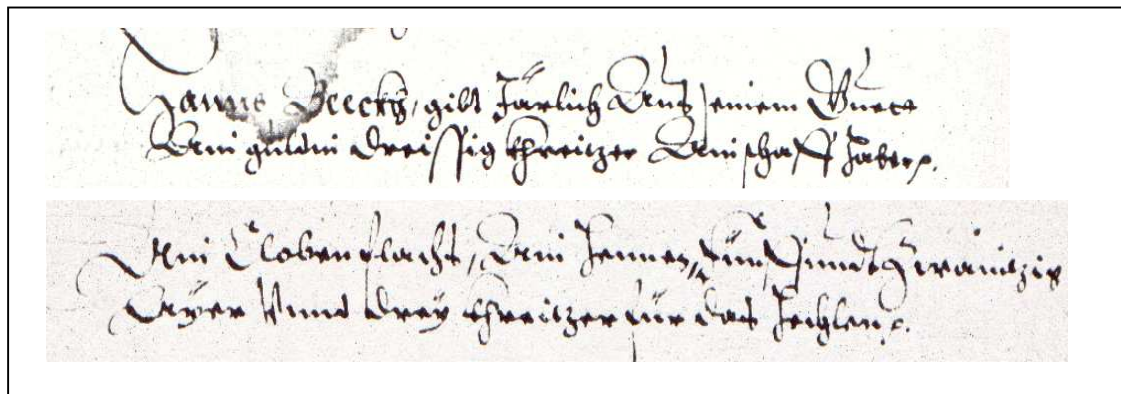 Hanns Beeckh, gibt Järlich Auß seinem Guett
Ain guldin dreissig khreitzer Ain schaff haber.
Ain Cloben flachs, Ain hennen, fünffundtzwaintzig
Ayer Vnnd drey khreitzer für das